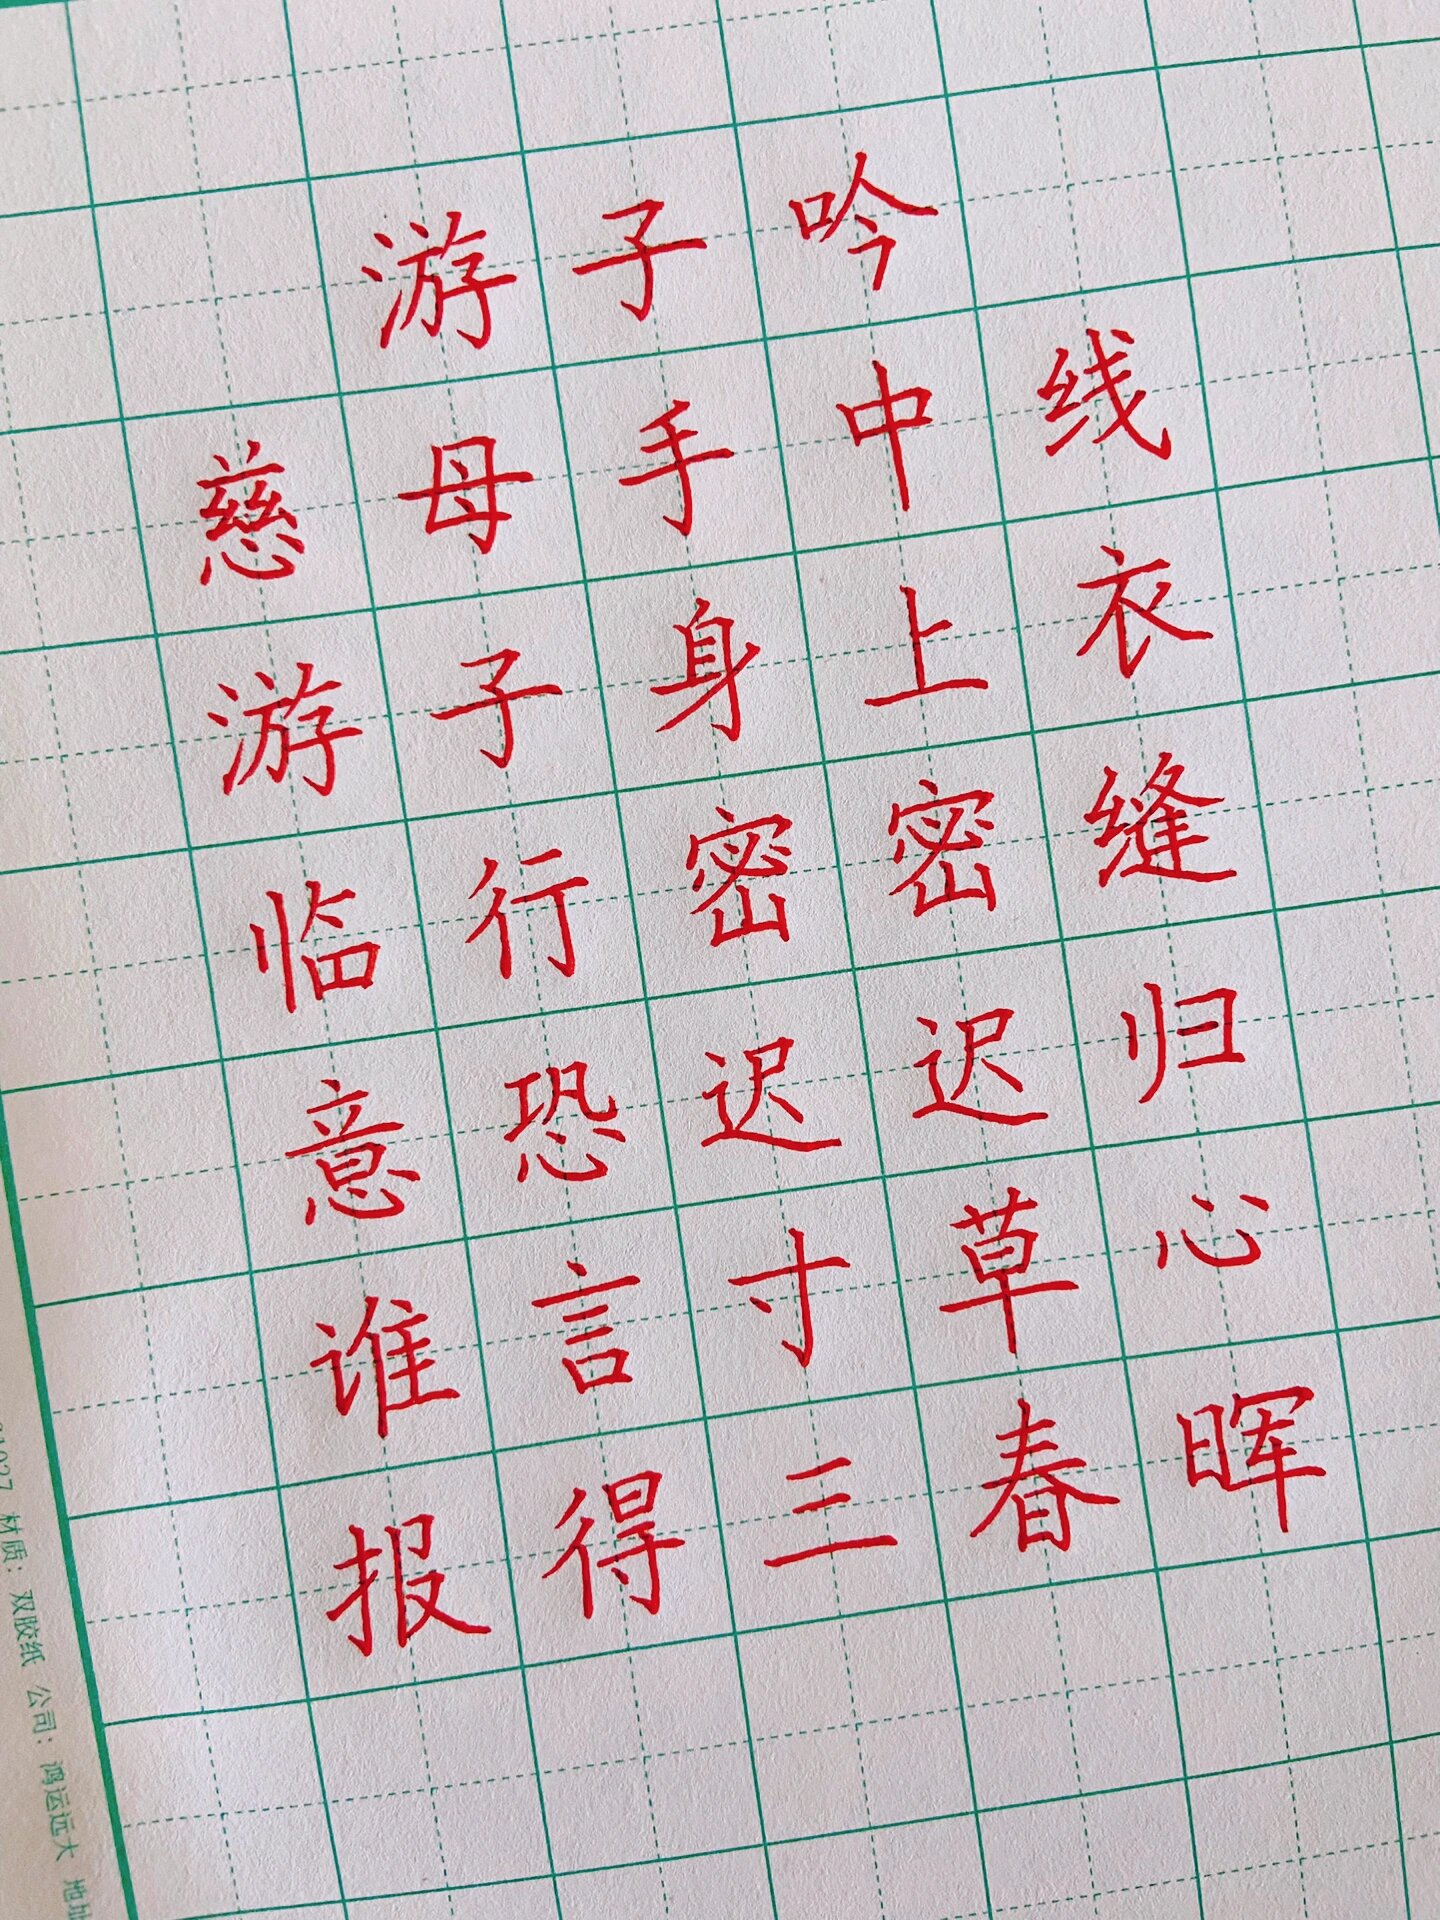 游子吟
慈母手中线
游子身上衣
临行密密缝
意恐迟迟归
谁言寸草心
报得三春晖
材质：双胶纸 公司：鸿运远大